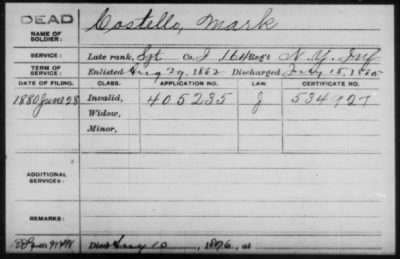 DEAD
NAME OF SOLDIER: Costello, Mark
SERVICE: Late rank, Sgt Co. I, 164 Reg't N. Y. Inf
TERM OF SERVICE: Enlisted Aug 29, 1862 Discharged July 15, 1865
DATE OF FILING. CLASS. APPLICATION NO. LAW. CERTIFICATE NO.
1880 June 28 Invalid, 405235 J 534927
Widow,
Minor,
ADDITIONAL SERVICES:
REMARKS:
Died 10, 1896, at